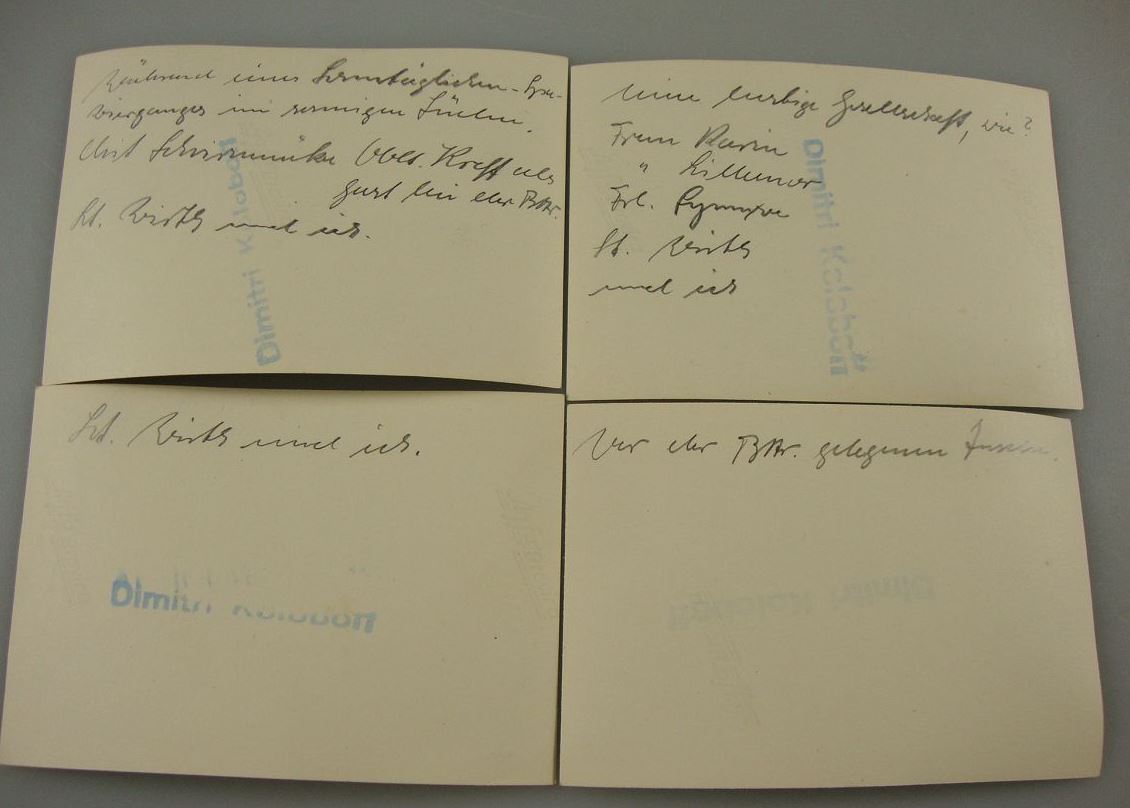 Während eines sonntäglichen Spa-
zierganges im sonnigen Süden.
Mit Schirmmütze Oblt. Kreft als
Gast bei der Bttr.
Lt. Wirth und ich.
Dimitri Koloboff
eine lustige Gesellschaft, wie?
Frau Karin
"
Frl.
Lt. Wirth
und ich
Dimitri Koloboff
Lt. Wirth und ich.
Dimitri Koloboff
Vor der Bttr. gelegenen Inseln.
Dimitri Koloboff